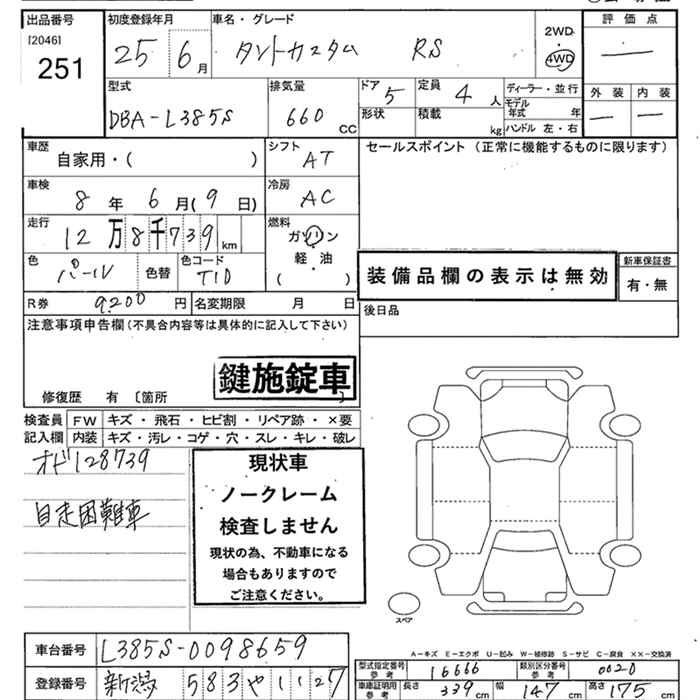 出品番号 初度登録年月 車名・グレード 評価点
[2046] 251 25 6月 タントカスタム RS 2WD 4WD
型式 排気量 ドア 5 定員 4人 ディーラー・並行 外装 内装
DBA-L385S 660 CC 形状 積載 kg モデル年式 年 ハンドル 左・右
車歴 自家用・( ) シフト AT セールスポイント(正常に機能するものに限ります)
車検 8年 6月(9日) 冷房 AC
走行 12万8千739km 燃料 ガソリン
軽油
( )
色 パール 色替 色コード T10
装備品欄の表示は無効 新車保証書
有・無
R券 9,200円 名変期限 月 日 後日品
注意事項申告欄(不具合内容等は具体的に記入して下さい)
鍵施錠車
修復歴 有 〔箇所 〕
検査員 FW キズ・飛石・ヒビ割・リペア跡・×要
記入欄 内装 キズ・汚レ・コゲ・穴・スレ・キレ・破レ
オド128739
自走困難車
現状車
ノークレーム
検査しません
現状の為、不動車になる
場合もありますので
ご注意ください。
スペア
A-キズ E-エクボ U-凹み W-補修跡 S-サビ C-腐食 ××-交換済
車台番号 L385S-0098659
登録番号 新潟 583 や 1127
型式指定番号 参考 16666 類別区分番号 参考 0020
車庫証明用 参考 長さ 339cm 幅 147cm 高さ 175cm